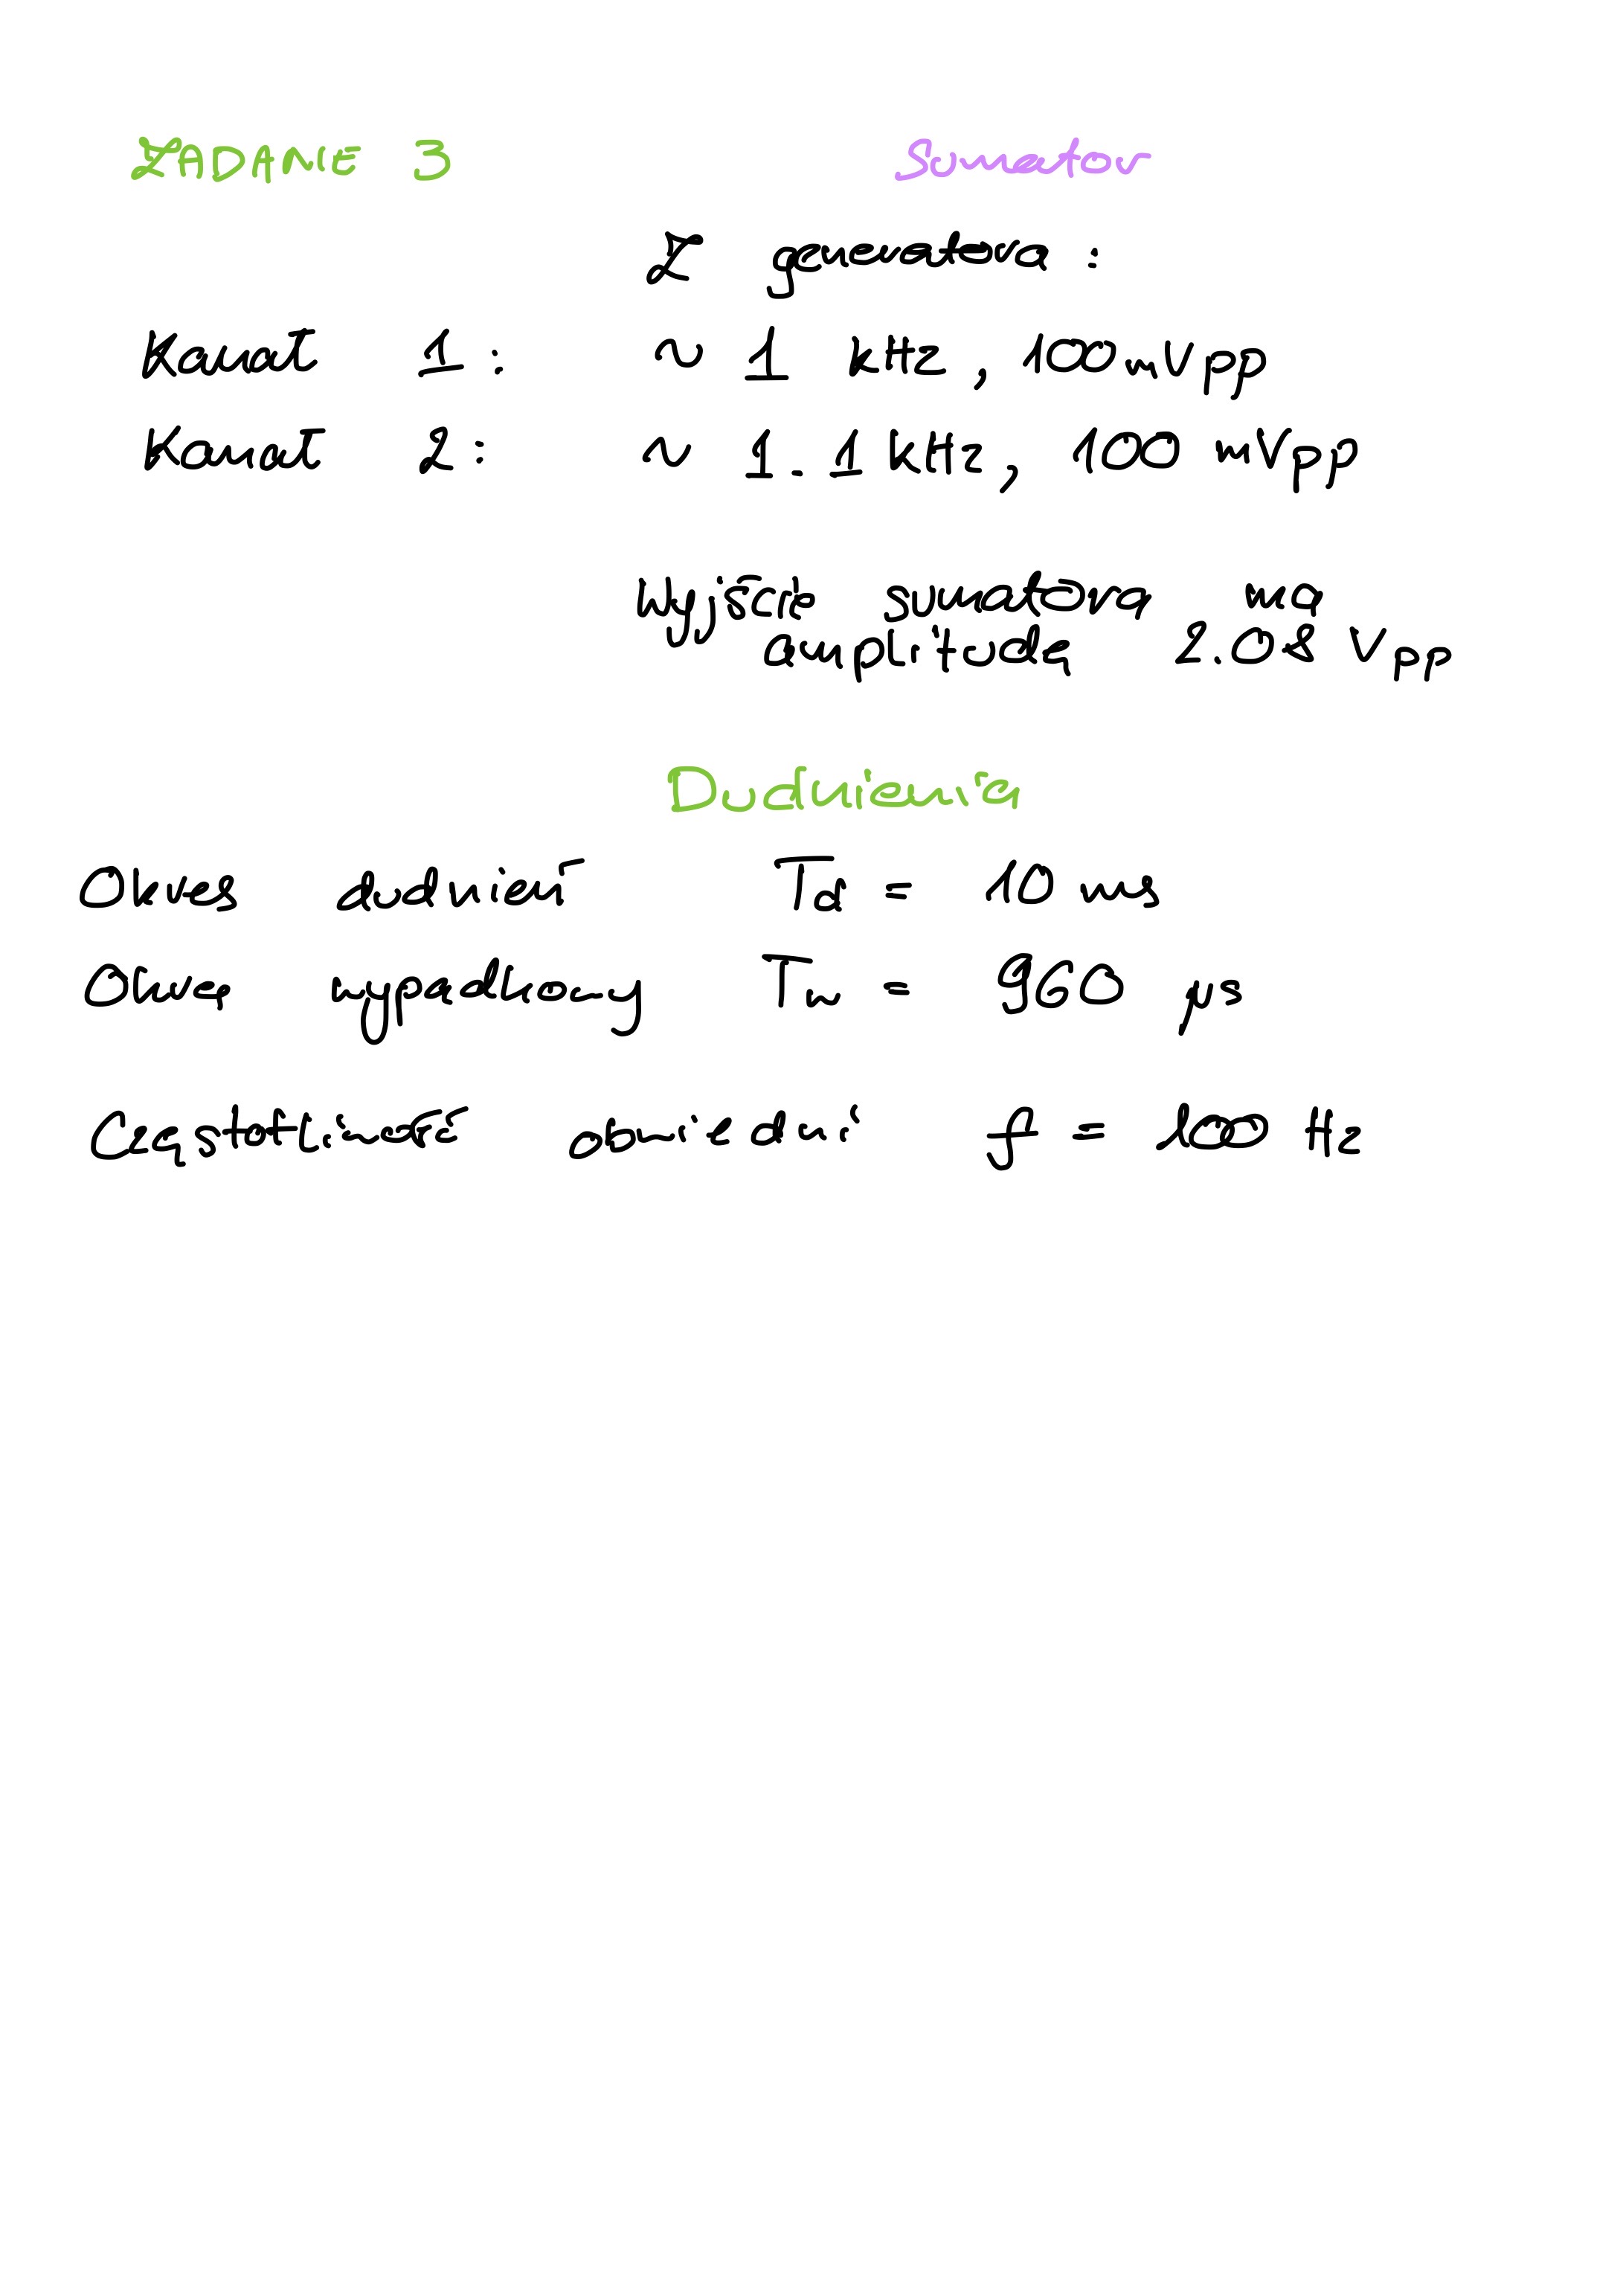 ZADANIE 3 Sumator
Z generatora :
Kanał 1 : ~ 1 kHz, 100mVpp
Kanał 2 : ~ 1.1 kHz, 100 mVpp
Wyjście sumatora ma
amplitudę 2.08 Vpp
Dudnienia
Okres dudnień Td = 10 ms
Okres wypadkowy Tw = 960 µs
Częstotliwość obwiedni f = 100 Hz